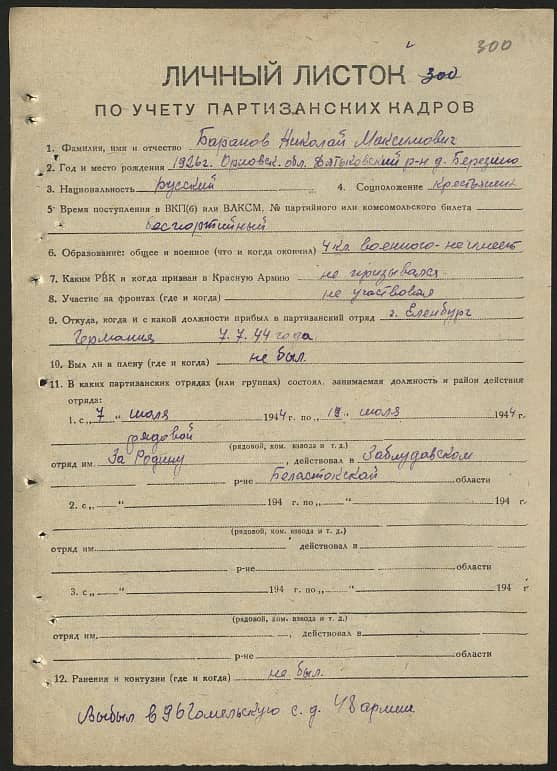 300
ЛИЧНЫЙ ЛИСТОК 300
ПО УЧЕТУ ПАРТИЗАНСКИХ КАДРОВ
1. Фамилия, имя и отчество Баранов Николай Максимович
2. Год и место рождения 1926г. Орловск. обл. Дятьковский р-н д. Березино
3. Национальность русский 4. Соцположение крестьянин
5 Время поступления в ВКП(б) или ВЛКСМ, № партийного или комсомольского билета
беспартийный
6. Образование: общее и военное (что и когда окончил) 4 кл военного-не имеет
7. Каким РВК и когда призван в Красную Армию не призывался
8. Участие на фронтах (где и когда) не участвовал
9. Откуда, когда и с какой должности прибыл в партизанский отряд г. Еленбург
Германия 7.7.44 года
10. Был ли в плену (где и когда) не был.
11. В каких партизанских отрядах (или группах) состоял, занимаемая должность и район действия
отряда:
1. с „ 7 “ июля 1944 г. по „ “ июля 1944 г.
рядовой
(рядовой, ком. взвода и т. д.)
отряд им. За Родину, действовал в Заблудавском
р-не Беластокской области
2. с „ “ 194 г. по „ “ 194 г.
(рядовой, ком. взвода и т. д.)
отряд им. действовал в
р-не области
3. с „ “ 194 г. по „ “ 194 г.
(рядовой, ком. взвода и т. д.)
отряд им. , действовал в
р-не области
12. Ранения и контузии (где и когда) не был.
Выбыл в 96 Гомельскую с. д. 48 армии.